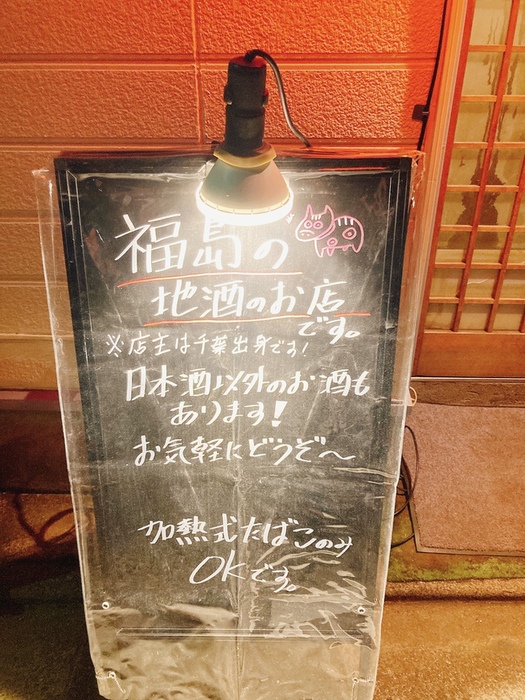 福島の
地酒のお店
です。
※店主は千葉出身です!
日本酒以外のお酒も
あります!
お気軽にどうぞ〜
加熱式たばこのみ
OKです。